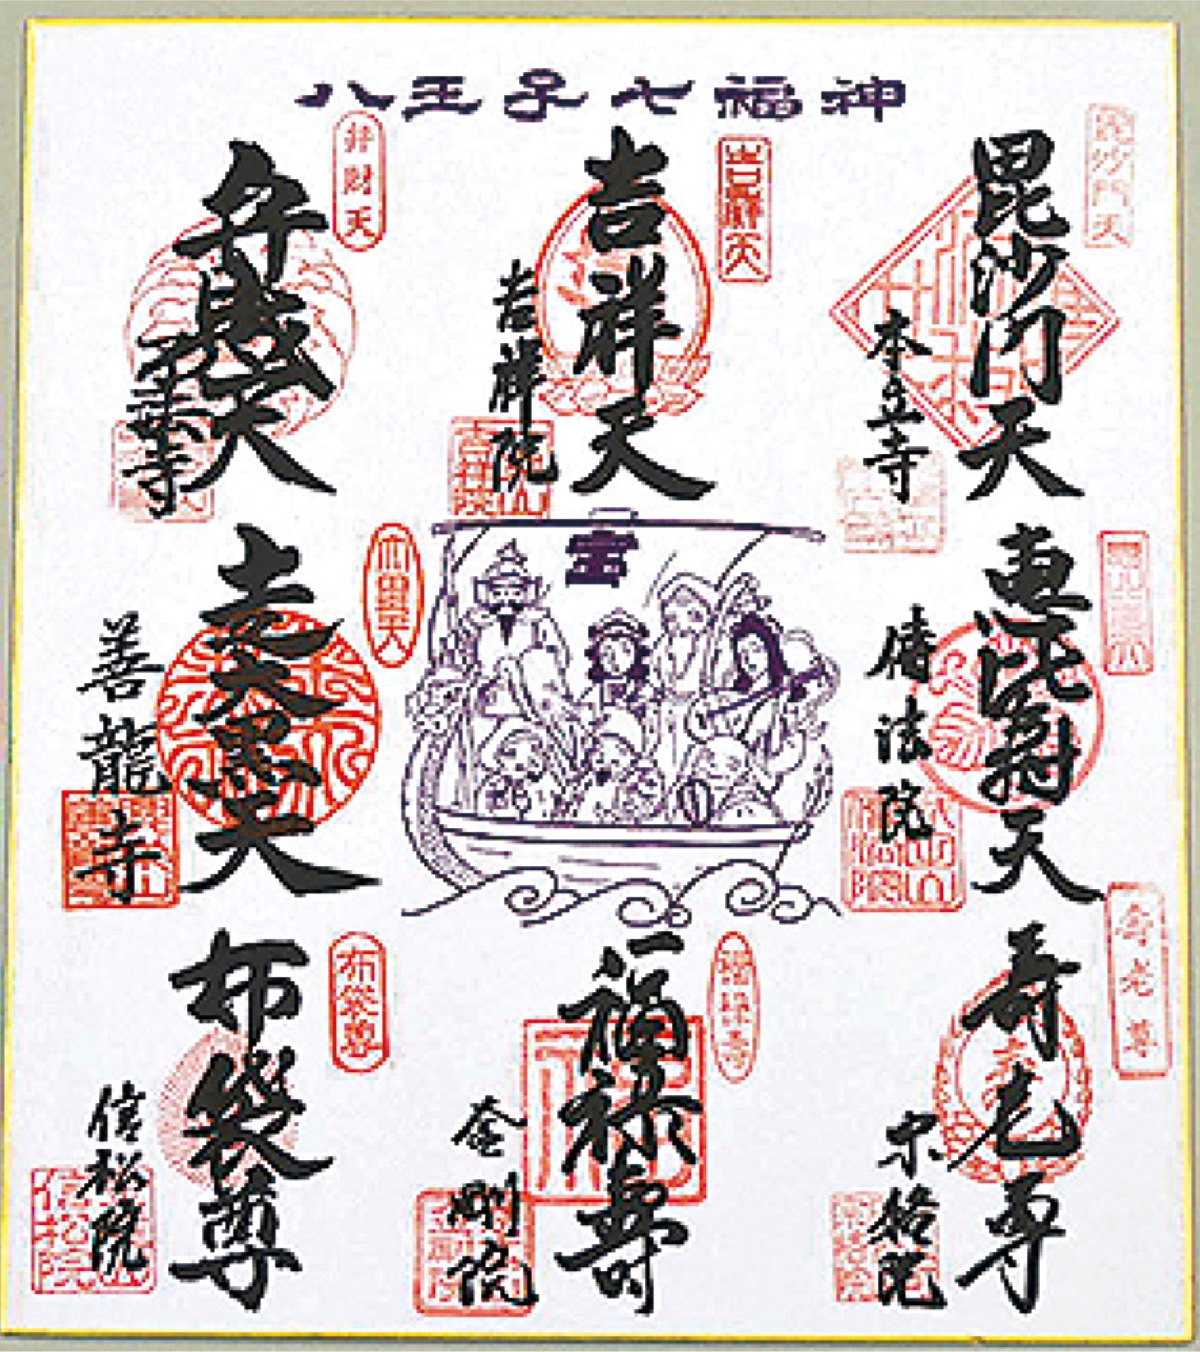 八王子七福神
毘沙門天
毘沙門天
本立寺
吉祥天
吉祥天
吉祥院
吉祥院
弁財天
弁財天
寺
恵比寿天
院
宝
大黒天
走大黒天
善龍寺
寿老尊
寿老尊
宗格院
福禄寿
福禄寿
金剛院
布袋尊
布袋尊
信松院
信松院